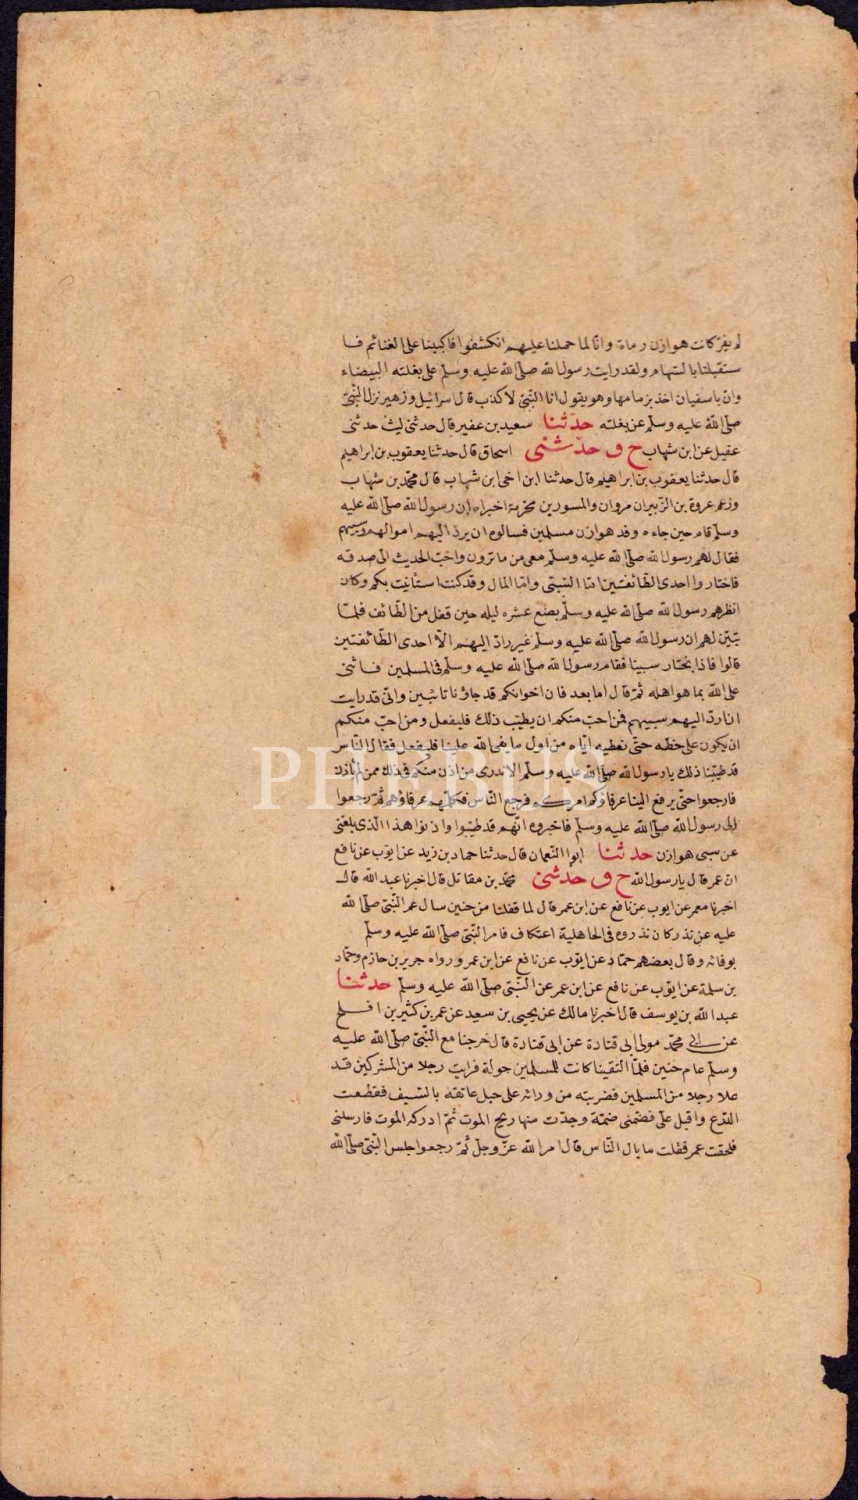 لم يفر كانت هوازن رماة وانا لما حملنا عليهم انكشفوا فاكببنا على الغنائم فا
ستقبلنا بالسهام ولقد رايت رسول الله صلى الله عليه وسلم على بغلته البيضاء
وان باسفيان اخذ بزمامها وهو يقول انا النبي لا كذب قال اسرائيل وزهير نزل النبي
صلى الله عليه وسلم عن بغلته حدثنا سعيد بن عفير قال حدثنى ليث حدثنى
عقيل عن ابن شهاب ح و حدثنى اسحاق قال حدثنا يعقوب بن ابراهيم
قال حدثنا يعقوب بن ابراهيم قال حدثنا ابن اخى ابن شهاب قال محمد بن شهاب
وزعم عروة بن الزبير ان مروان والمسور بن مخرمة اخبراه ان رسول الله صلى الله عليه
وسلم قام حين جاءه وفد هوازن مسلمين فسالوه ان يرد اليهم اموالهم وسبيهم
فقال لهم رسول الله صلى الله عليه وسلم معى من ما ترون واحب الحديث الى صدقه
فاختاروا احدى الطائفتين اما السبى واما المال وقد كنت استأنيت بكم وكان
انظرهم رسول الله صلى الله عليه وسلم بضع عشره ليله حين قفل من الطائف فلما
تبين لهم ان رسول الله صلى الله عليه وسلم غير راد اليهم الا احدى الطائفتين
قالوا فاذا نختار سبينا فقام رسول الله صلى الله عليه وسلم فى المسلمين فاثنى
على الله بما هو اهله ثم قال اما بعد فان اخوانكم قد جاؤنا تائبين وانى قد رايت
ان ارد اليهم سبيهم فمن احب منكم ان يطيب ذلك فليفعل ومن احب منكم
ان يكون على حظه حتى نعطيه اياه من اول ما يفى الله علينا فليفعل فقال الناس
قد طيبنا ذلك يا رسول الله صلى الله عليه وسلم لا ندرى من اذن منكم فى ذلك ممن لم يأذن
فارجعوا حتى يرفع الينا عرفاؤكم امركم فرجع الناس فكلمهم عرفاؤهم ثم رجعوا
الى رسول الله صلى الله عليه وسلم فاخبروه انهم قد طيبوا واذنوا هذا الذى بلغنى
عن سبى هوازن حدثنا ابوا النعمان قال حدثنا حماد بن زيد عن ايوب عن نافع
ان عمر قال يا رسول الله ح و حدثنى محمد بن مقاتل قال اخبرنا عبد الله قال
اخبرنا معمر عن ايوب عن نافع عن ابن عمر قال لما قفلنا من حنين سال عمر النبى صلى الله
عليه عن نذر كان نذروه فى الجاهلية اعتكاف فامر النبى صلى الله عليه وسلم
بوفائه وقال بعضهم حماد عن ايوب عن نافع عن ابن عمر ورواه جرير بن حازم وحماد
بن سلمة عن ايوب عن نافع عن ابن عمر عن النبى صلى الله عليه وسلم حدثنا
عبد الله بن يوسف قال اخبرنا مالك عن يحيى بن سعيد عن عمر بن كثير بن افلح
عن ابى محمد مولى ابى قتادة عن ابى قتادة قال خرجنا مع النبى صلى الله عليه
وسلم عام حنين فلما التقينا كانت للمسلمين جولة فرايت رجلا من المشركين قد
علا رجلا من المسلمين فضربته من ورائه على حبل عاتقه بالسيف فقطعت
الدرع واقبل على فضمنى ضمة وجدت منها ريح الموت ثم ادركه الموت فارسلنى
فلحقت عمر فقلت ما بال الناس قال امر الله عز وجل ثم رجعوا جلس النبى صلى الله